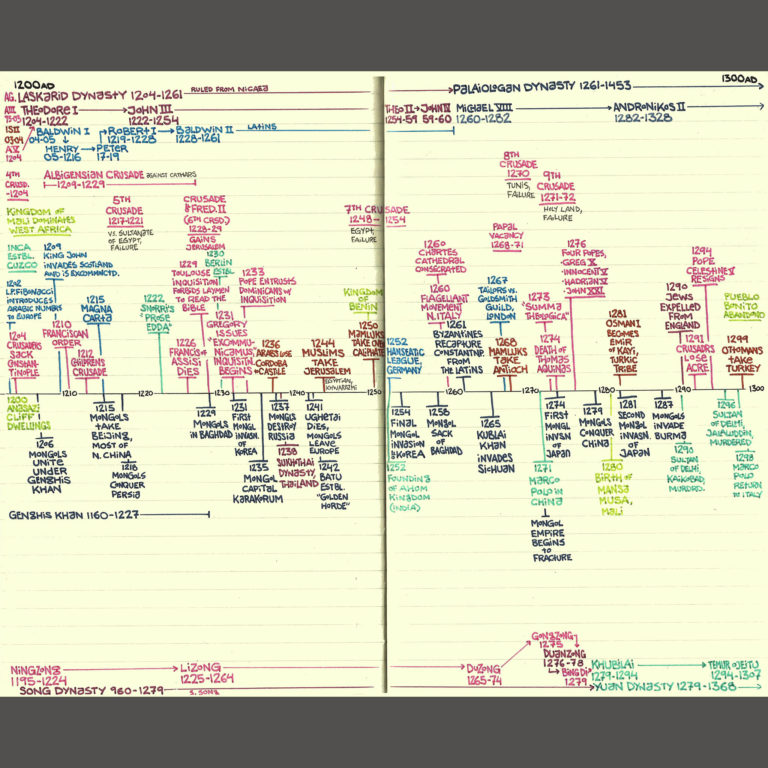 1200AD
LASKARID DYNASTY 1204-1261 RULED FROM NICAEA
PALAIOLOGAN DYNASTY 1261-1453
1300AD
THEODORE I
1204-1222
JOHN III
1222-1254
THEO II
1254-59
JOHN IV
59-60
MICHAEL VIII
1260-1282
ANDRONIKOS II
1282-1328
BALDWIN I
04-05
ROBERT I
1219-1228
BALDWIN II
1228-1261
LATINS
HENRY
05-1216
PETER
17-19
4TH
CRUSD.
-1204
ALBIGENSIAN CRUSADE AGAINST CATHARS
1209-1229
KINGDOM OF
MALI DOMINATES
WEST AFRICA
5TH
CRUSADE
1217-1221
VS. SULTANATE
OF EGYPT,
FAILURE
CRUSADE
FRED.II
(6TH CRSD)
1228-29
GAINS
JERUSALEM
7TH CRUSADE
1248-1254
EGYPT,
FAILURE
8TH
CRUSADE
1270
TUNIS,
FAILURE
9TH
CRUSADE
1271-72
HOLY LAND,
FAILURE
INCA
ESTBL.
CUZCO
1209
KING JOHN
INVADES SCOTLAND
AND IS EXCOMUNCTD.
1202
L.FIBONACCI
INTRODUCES
ARABIC NUMBRS
TO EUROPE
1204
CRUSADERS
SACK
CONSTAN-
TINOPLE
1210
FRANCISCAN
ORDER
1212
CHILDREN'S
CRUSADE
1215
MAGNA
CARTA
1222
SNORRI'S
"PROSE
EDDA"
1226
FRANCIS OF
ASSISI
DIES
1229
TOULOUSE
INQUISITION
FORBIDS LAYMEN
TO READ THE
BIBLE
1230
BERLIN
ESTBL
1231
GREGORY
ISSUES
"EXCOMMU-
NICAMUS,"
INQUISITN.
BEGINS
1233
POPE ENTRUSTS
DOMINICANS W.
INQUISITION
1236
ARABS LOSE
CORDOBA
CASTLE
1244
MUSLIMS
TAKE
JERUSALEM
KINGDOM
OF BENIN
1250
MAMLUKS
TAKE ON
CALIPHATE
1252
HANSEATIC
LEAGUE,
GERMANY
1260
CHARTES
CATHEDRAL
CONSECRATED
1260
FLAGELLANT
MOVEMENT
N.ITALY
1261
BYZANTINES
RECAPTURE
CONSTANTNP.
FROM
THE LATINS
PAPAL
VACANCY
1268-71
1267
TAILORS VS.
GOLDSMITH
GUILD,
LONDON
1268
MAMLUKS
TAKE
ANTIOCH
1273
"SUMMA
THEOLOGICA"
1274
DEATH OF
THOMAS
AQUINAS
1276
FOUR POPES,
GREG X
INNOCENT V
HADRIAN V
JOHN XXI
1281
OSMAN I
BECOMES
EMIR
OF KAYI,
TURKIC
TRIBE
1290
JEWS
EXPELLED
FROM
ENGLAND
1291
CRUSADRS
LOSE
ACRE
1294
POPE
CELESTINE V
RESIGNS
PUEBLO
BONITO
ABANDOND
1299
OTTOMANS
TAKE
TURKEY
1210 1220 1230 1240 1250 1260 1270 1280 1290 1300
1200
ANASAZI
CLIFF
DWELLINGS
1206
MONGOLS
UNITE
UNDER
GENGHIS
KHAN
1215
MONGOLS
TAKE
BEIJING,
MOST OF
N. CHINA
1218
MONGOLS
CONQUER
PERSIA
1229
MONGOLS
IN BAGHDAD
1231
FIRST
MONGL
INVASN.
OF
KOREA
1235
MONGOL
CAPITAL
KARAKORUM
1237
MONGLS
DESTROY
RUSSIA
1238
SUKHOTHAI
DYNASTY,
THAILAND
1241
UGHETAI
DIES,
MONGOLS
LEAVE
EUROPE
1242
BATU
ESTBL.
"GOLDEN
HORDE"
1254
FINAL
MONGOL
INVASION
OF KOREA
1252
FOUNDING
OF AHOM
KINGDOM
(INDIA)
1258
MONGOL
SACK
OF
BAGHDAD
1265
KUBLAI
KHAN
INVADES
SICHUAN
1271
MARCO
POLO IN
CHINA
MONGOL
EMPIRE
BEGINS
TO
FRACTURE
1274
FIRST
MONGL
INVSN
OF
JAPAN
1279
MONGOLS
CONQUER
CHINA
1280
BIRTH OF
MANSA
MUSA,
MALI
1281
SECOND
MONGL
INVASN.
OF
JAPAN
1287
MONGOLS
INVADE
BURMA
1290
SULTAN
OF DELHI
KAIKOBAD,
MURDRD.
1296
SULTAN
OF DELHI,
JALALUDDIN,
MURDERED
1298
MARCO
POLO
RETURN
TO ITALY
GENGHIS KHAN 1160-1227
NINGZONG
1195-1224
LIZONG
1225-1264
DUZONG
1265-74
GONGZONG
1275
DUANZONG
1276-78
BING DI
1279
KHUBILAI
1279-1294
TEMUR OLJEITU
1294-1307
SONG DYNASTY 960-1279 S. SONG
YUAN DYNASTY 1279-1368